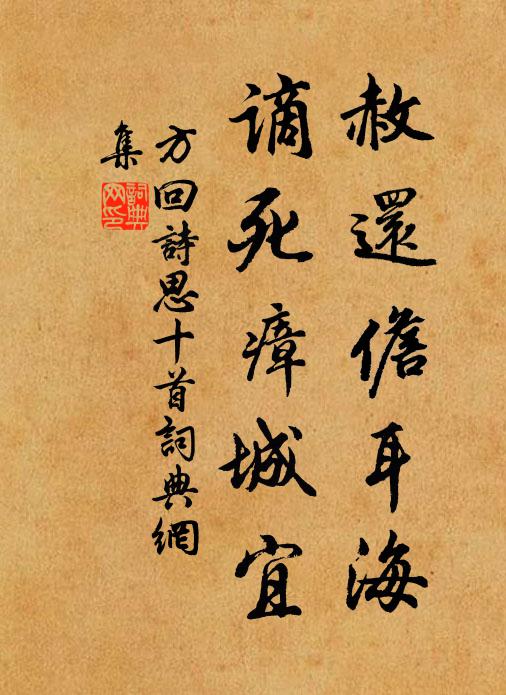 赦還儋耳海
謫死瘴城宜
方回詩思十首詞典網
集
詞典
网印